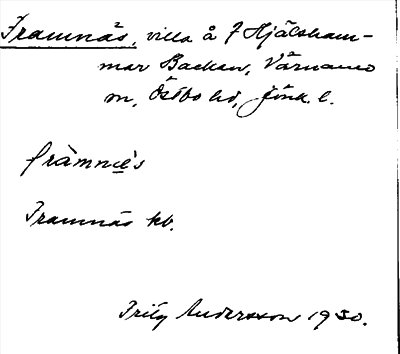 Framnäs, villa å f Hjälsham-
mar Backen, Värnamo
sn, Östbo hd, Jönk. l.
fràmnǟ̀s
Framnäs kb.
Fritz Andersson 1930.